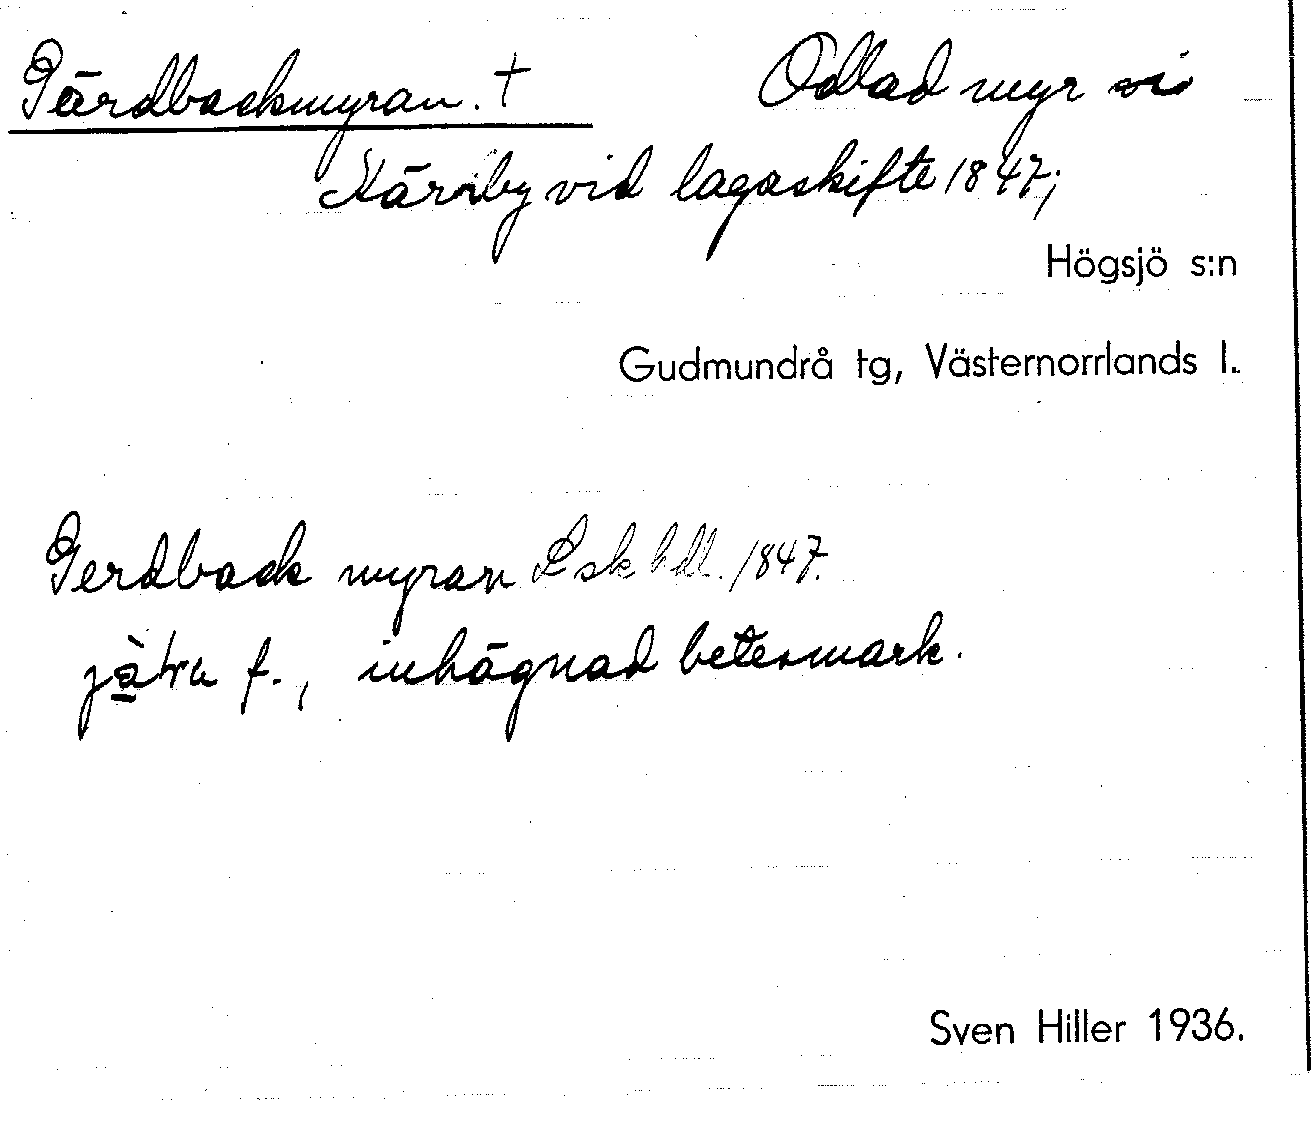 Gärdbackmyran. † Odlad myr vi
Kärrby vid lagaskifte 1847;
Högsjö s:n
Gudmundrå tg, Västernorrlands l.
Gerdback myran L sk hdl. 1847.
f., inhägnad betesmark.
Sven Hiller 1936.